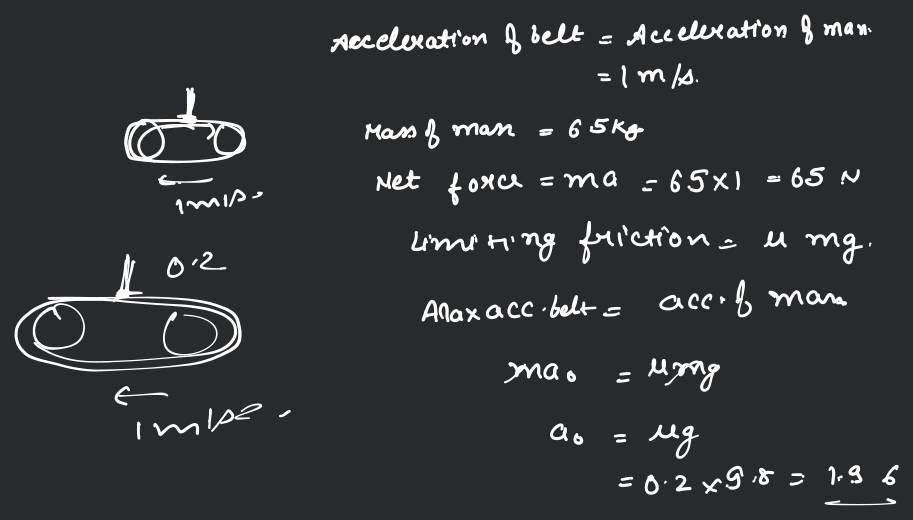 Acceleration of belt = Acceleration of man.
= 1 m/s.
Mass of man = 65kg
Net force = ma = 65×1 = 65 N
Limiting friction = μ mg.
Max acc. belt = acc. of man
ma₀ = μmg
a₀ = μg
= 0.2 × 9.8 = 1.96
1m/s.
0.2
1m/s2.